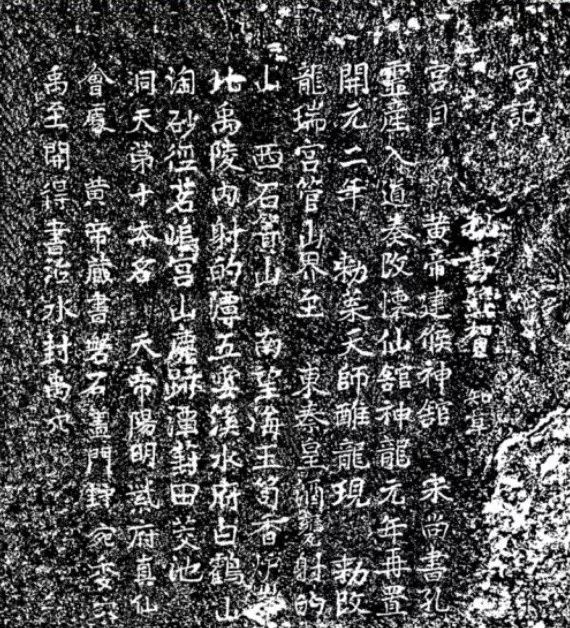 宮記
秘書監賀知章
宮自 黃帝建候神舘 宋尚書孔
霊產入道奏改懐仙舘神龍元年再置
開元二年 勑葉天師醮龍現 勑改
龍瑞宮管山界至 東秦皇酒甕射的
山 西石簣山 南望海玉笥香炉峯
北禹陵內射的潭五雲溪水府白鶴山
淘砂徑茗塢宮山鹿跡潭葑田茭池
洞天第十本名 天帝陽明紫府真仙
會處 黄帝藏書磐石盖門封宛委穴
禹至開得書治水封禹穴